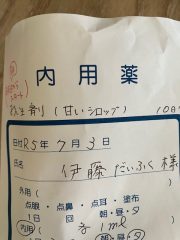 内用薬
抗生剤(甘いシロップ) 10日
日付 R5年7月3日
氏名 伊藤だいふく 様
外用(
点眼・点鼻・点耳・塗布
1日 回 朝・昼・夕
内用(
1日 回 朝・昼・夕